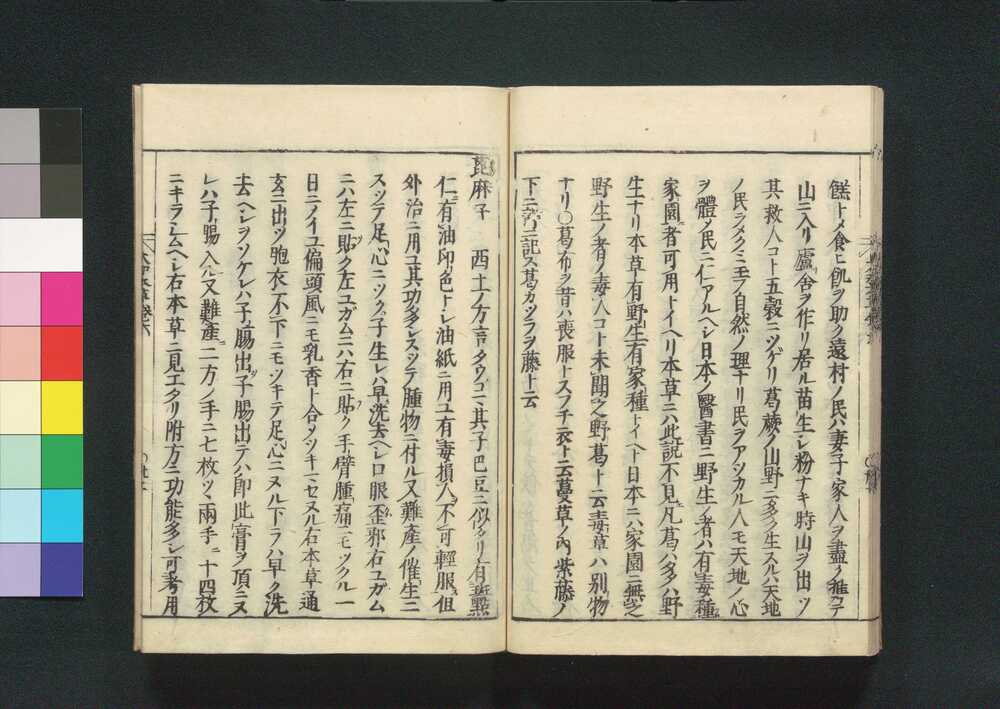 餻トメ食ヒ飢ヲ助ク遠村ノ民ハ妻子家人ヲ盡ク携ヘテ
山ニ入リ廬舎ヲ作リ居ル苗生シ粉ナキ時山ヲ出ツ
其救人コト五穀ニツゲリ葛蕨ノ山野ニ多ク生スルハ天地
ノ民ヲメクミ玉フ自然ノ理ナリ民ヲアツカル人モ天地ノ心
ヲ體ノ民ニ仁アルヘシ日本ノ醫書ニ野生ノ者ハ有毒種
家園者可用トイヘリ本草ニハ此説不見凡葛ハ多ハ野
生ナリ本草有野生有家種トイヘト日本ニハ家園ニ無之
野生ノ者ノ毒人コト未聞之野葛ト云毒草ハ別物
ナリ○葛布ヲ昔ハ喪服トスフチ衣ト云蔓草ノ内紫藤ノ
下ニ記ス葛カツラヲ藤ト云
萆麻子 西土ノ方言タウゴマ其子巴豆ニ似タリ有斑點
仁ニ有油印色トシ油紙ニ用ユ有毒損人不可輕服但
外治ニ用ユ其功多シスツテ腫物ニ付ル又難産ノ催生ニ
スツテ足心ニツク子生レハ早洗去ヘシ口眼歪邪右ユガム
ニハ左ニ貼ク左ユガムニハ右ニ貼ク手臂腫痛ニモツクル一
日ニノイユ偏頭風ニモ乳香ト合ツツキマセヌル右本草通
玄ニ出ツ胞衣不下ニモツキテ足心ニヌル下ラハ早ク洗
去ヘシヲソケレハ子膓出ツ子膓出テハ即此膏ヲ頂ニヌ
レハ子膓入ル又難産ニ一方ノ手ニ七枚ツヽ兩手ニ十四枚
ニキラシムヘシ右本草ニ見エタリ附方ニ功能多シ可考用